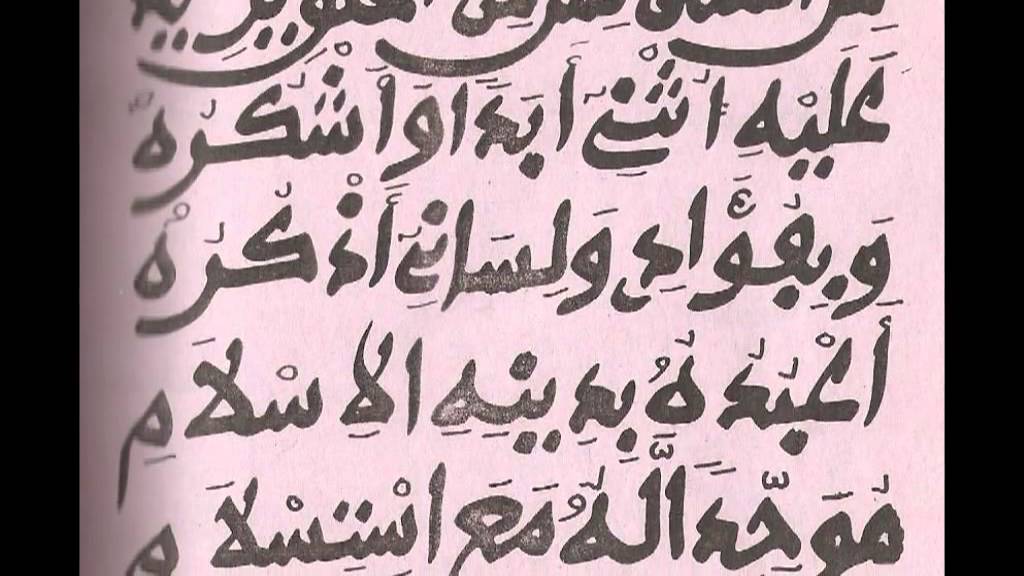 عَلَيْهِ أُثْنِي أَبَدًا وَأَشْكُرُهْ
وَبِفُؤَادِي وَلِسَانِي أَذْكُرُهْ
أَعْبُدُهُ بِدِينِهِ الإِسْلَامِ
مُوَحِّدًا لَهُ مَعَ اسْتِسْلَامِ